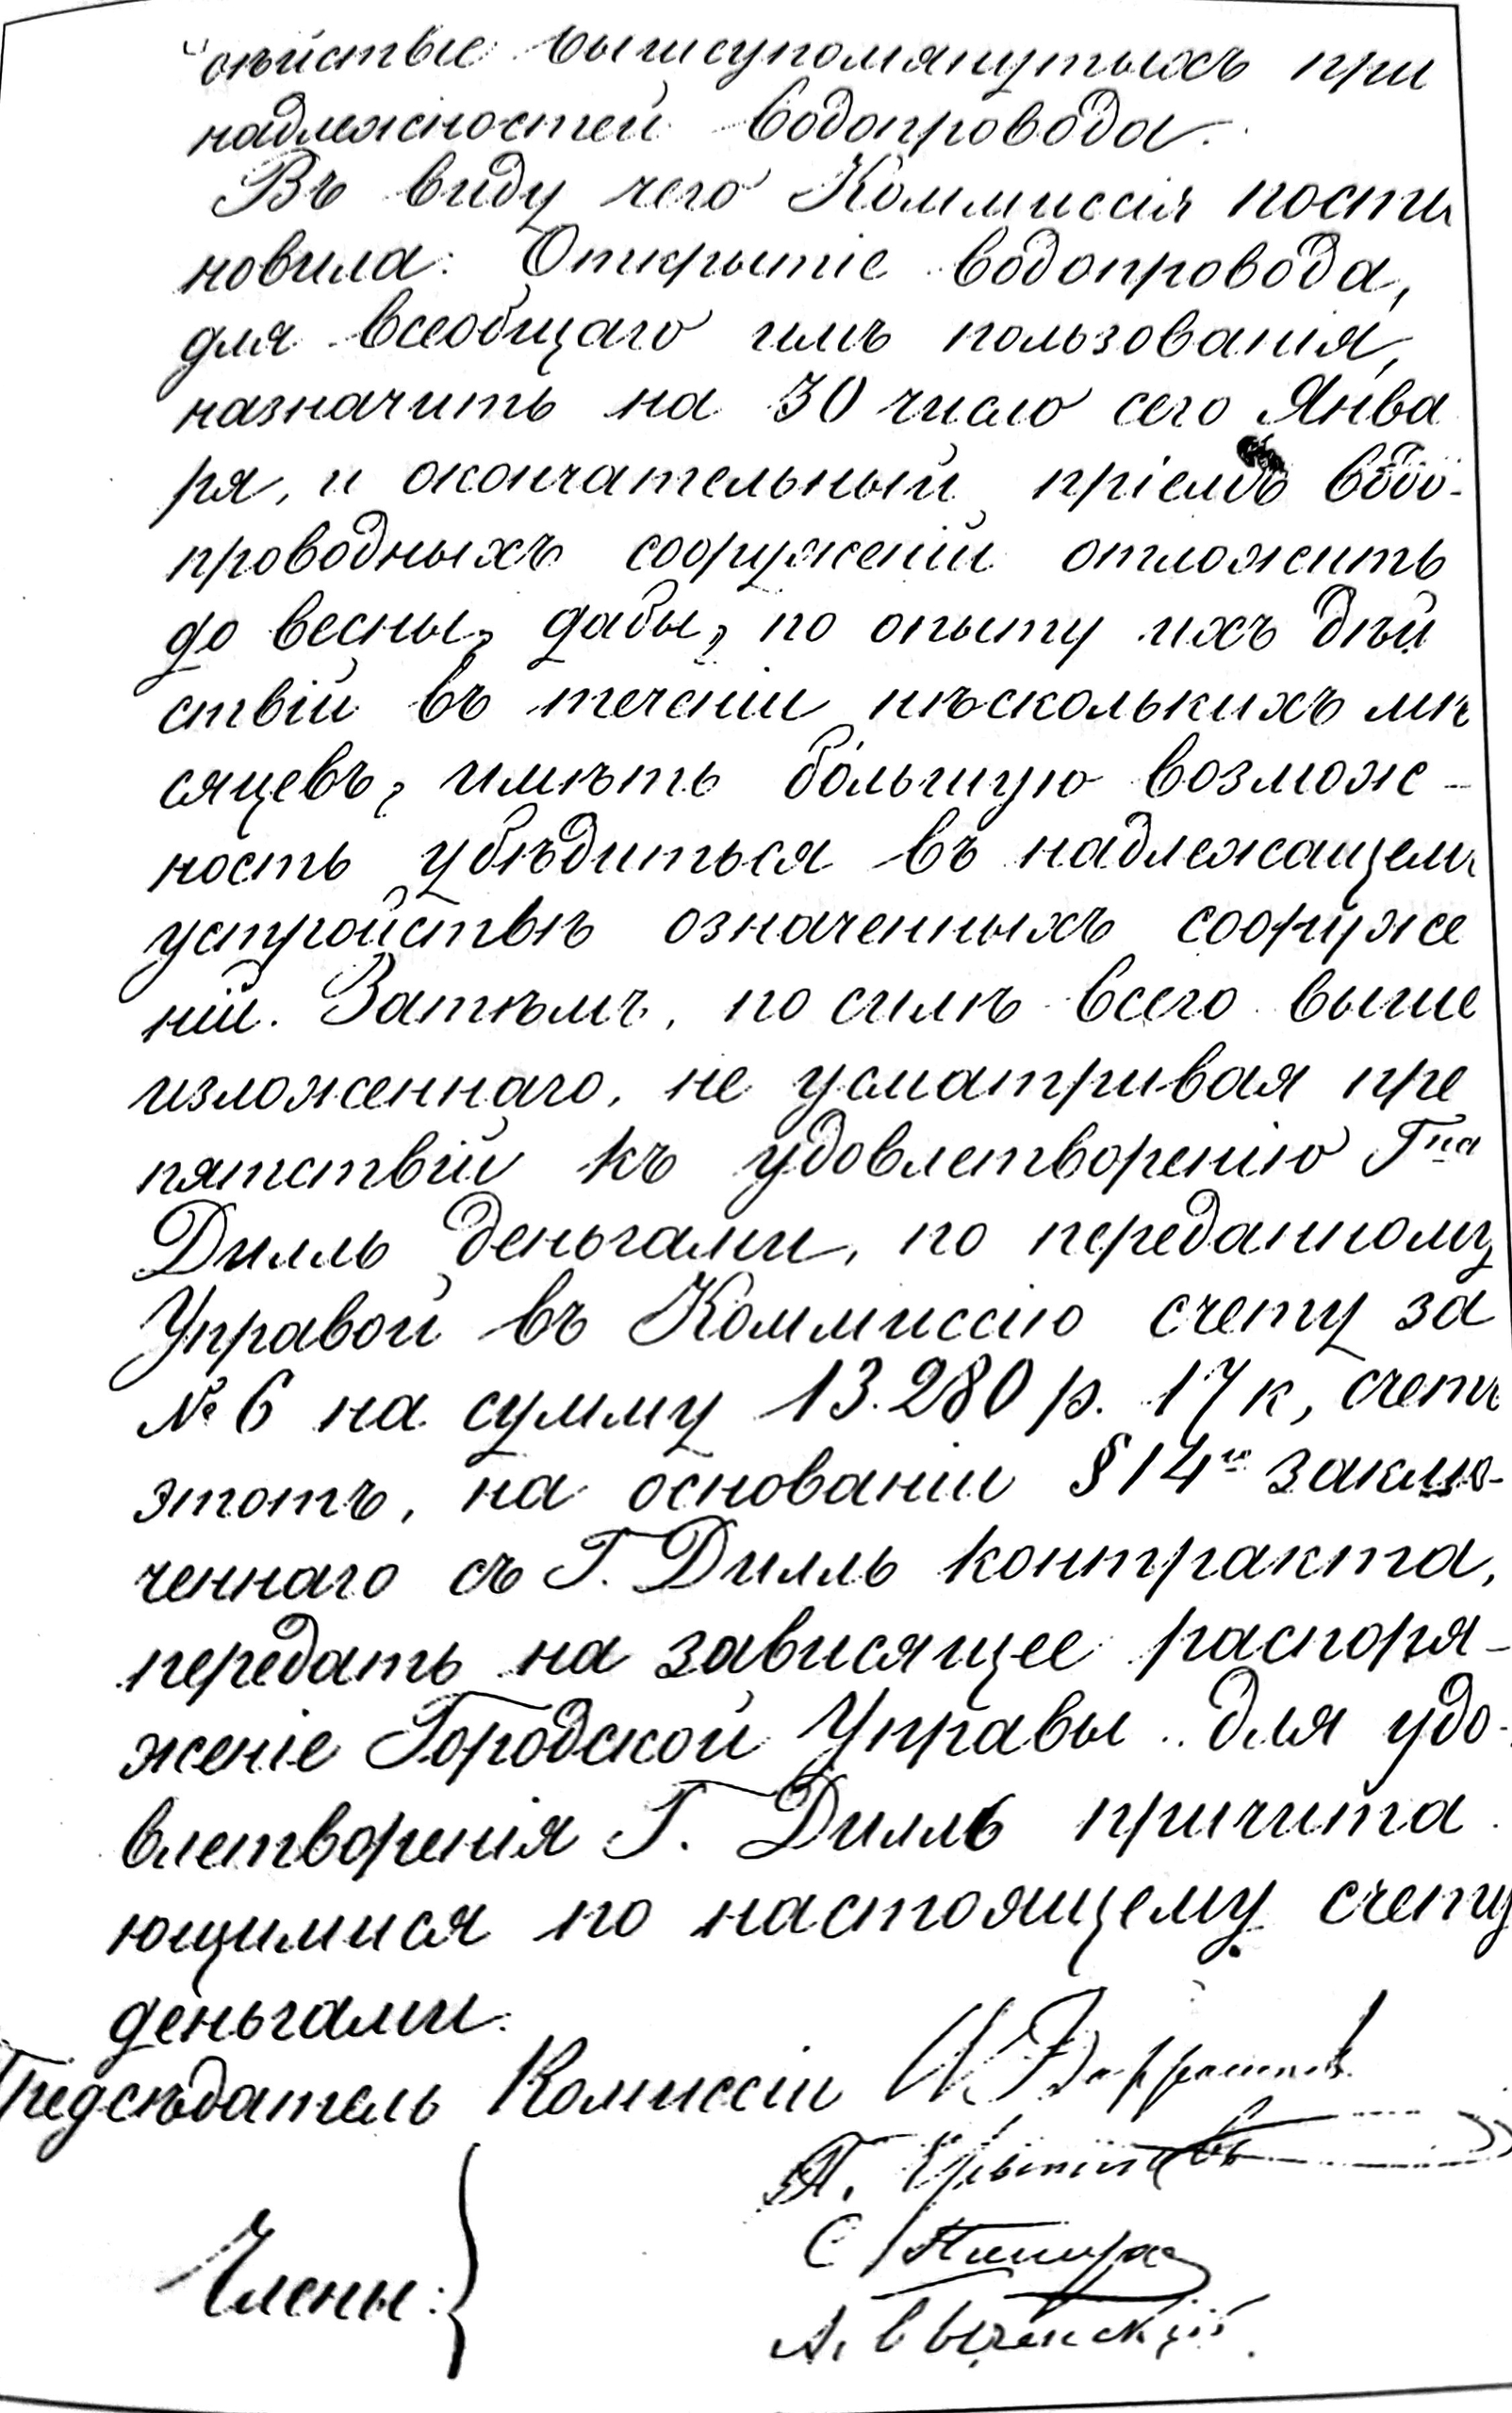 вышеупомянутыхъ при
надлежностей водопровода.
Въ виду чего Коммиссія поста
новила: Открытіе водопровода,
для всеобщаго имъ пользованія,
назначить на 30 число сего Янва
ря, и окончательный пріемъ водо-
проводныхъ сооруженій отложить
до весны, дабы, по опыту ихъ дѣй
ствій въ теченіи нѣсколькихъ мѣ
сяцевъ, имѣть бо́льшую возмож-
ность убѣдиться въ надлежащемъ
устройствѣ означенныхъ сооруже
ній. Затѣмъ, по силѣ всего выше
изложеннаго, не усматривая пре
пятствій къ удовлетворенію Гна
Дилль деньгами, по переданному
Управой въ Коммиссію счету за
№ 6 на сумму 13.280 р. 17 к, счетъ
этотъ, на основаніи § 14го заклю-
ченнаго съ Г. Дилль контракта,
передать на зависящее распоря-
женіе Городской Управы для удо-
влетворенія Г. Дилль причита
ющимися по настоящему счету
деньгами.
Предсѣдатель Комиссіи
Члены: